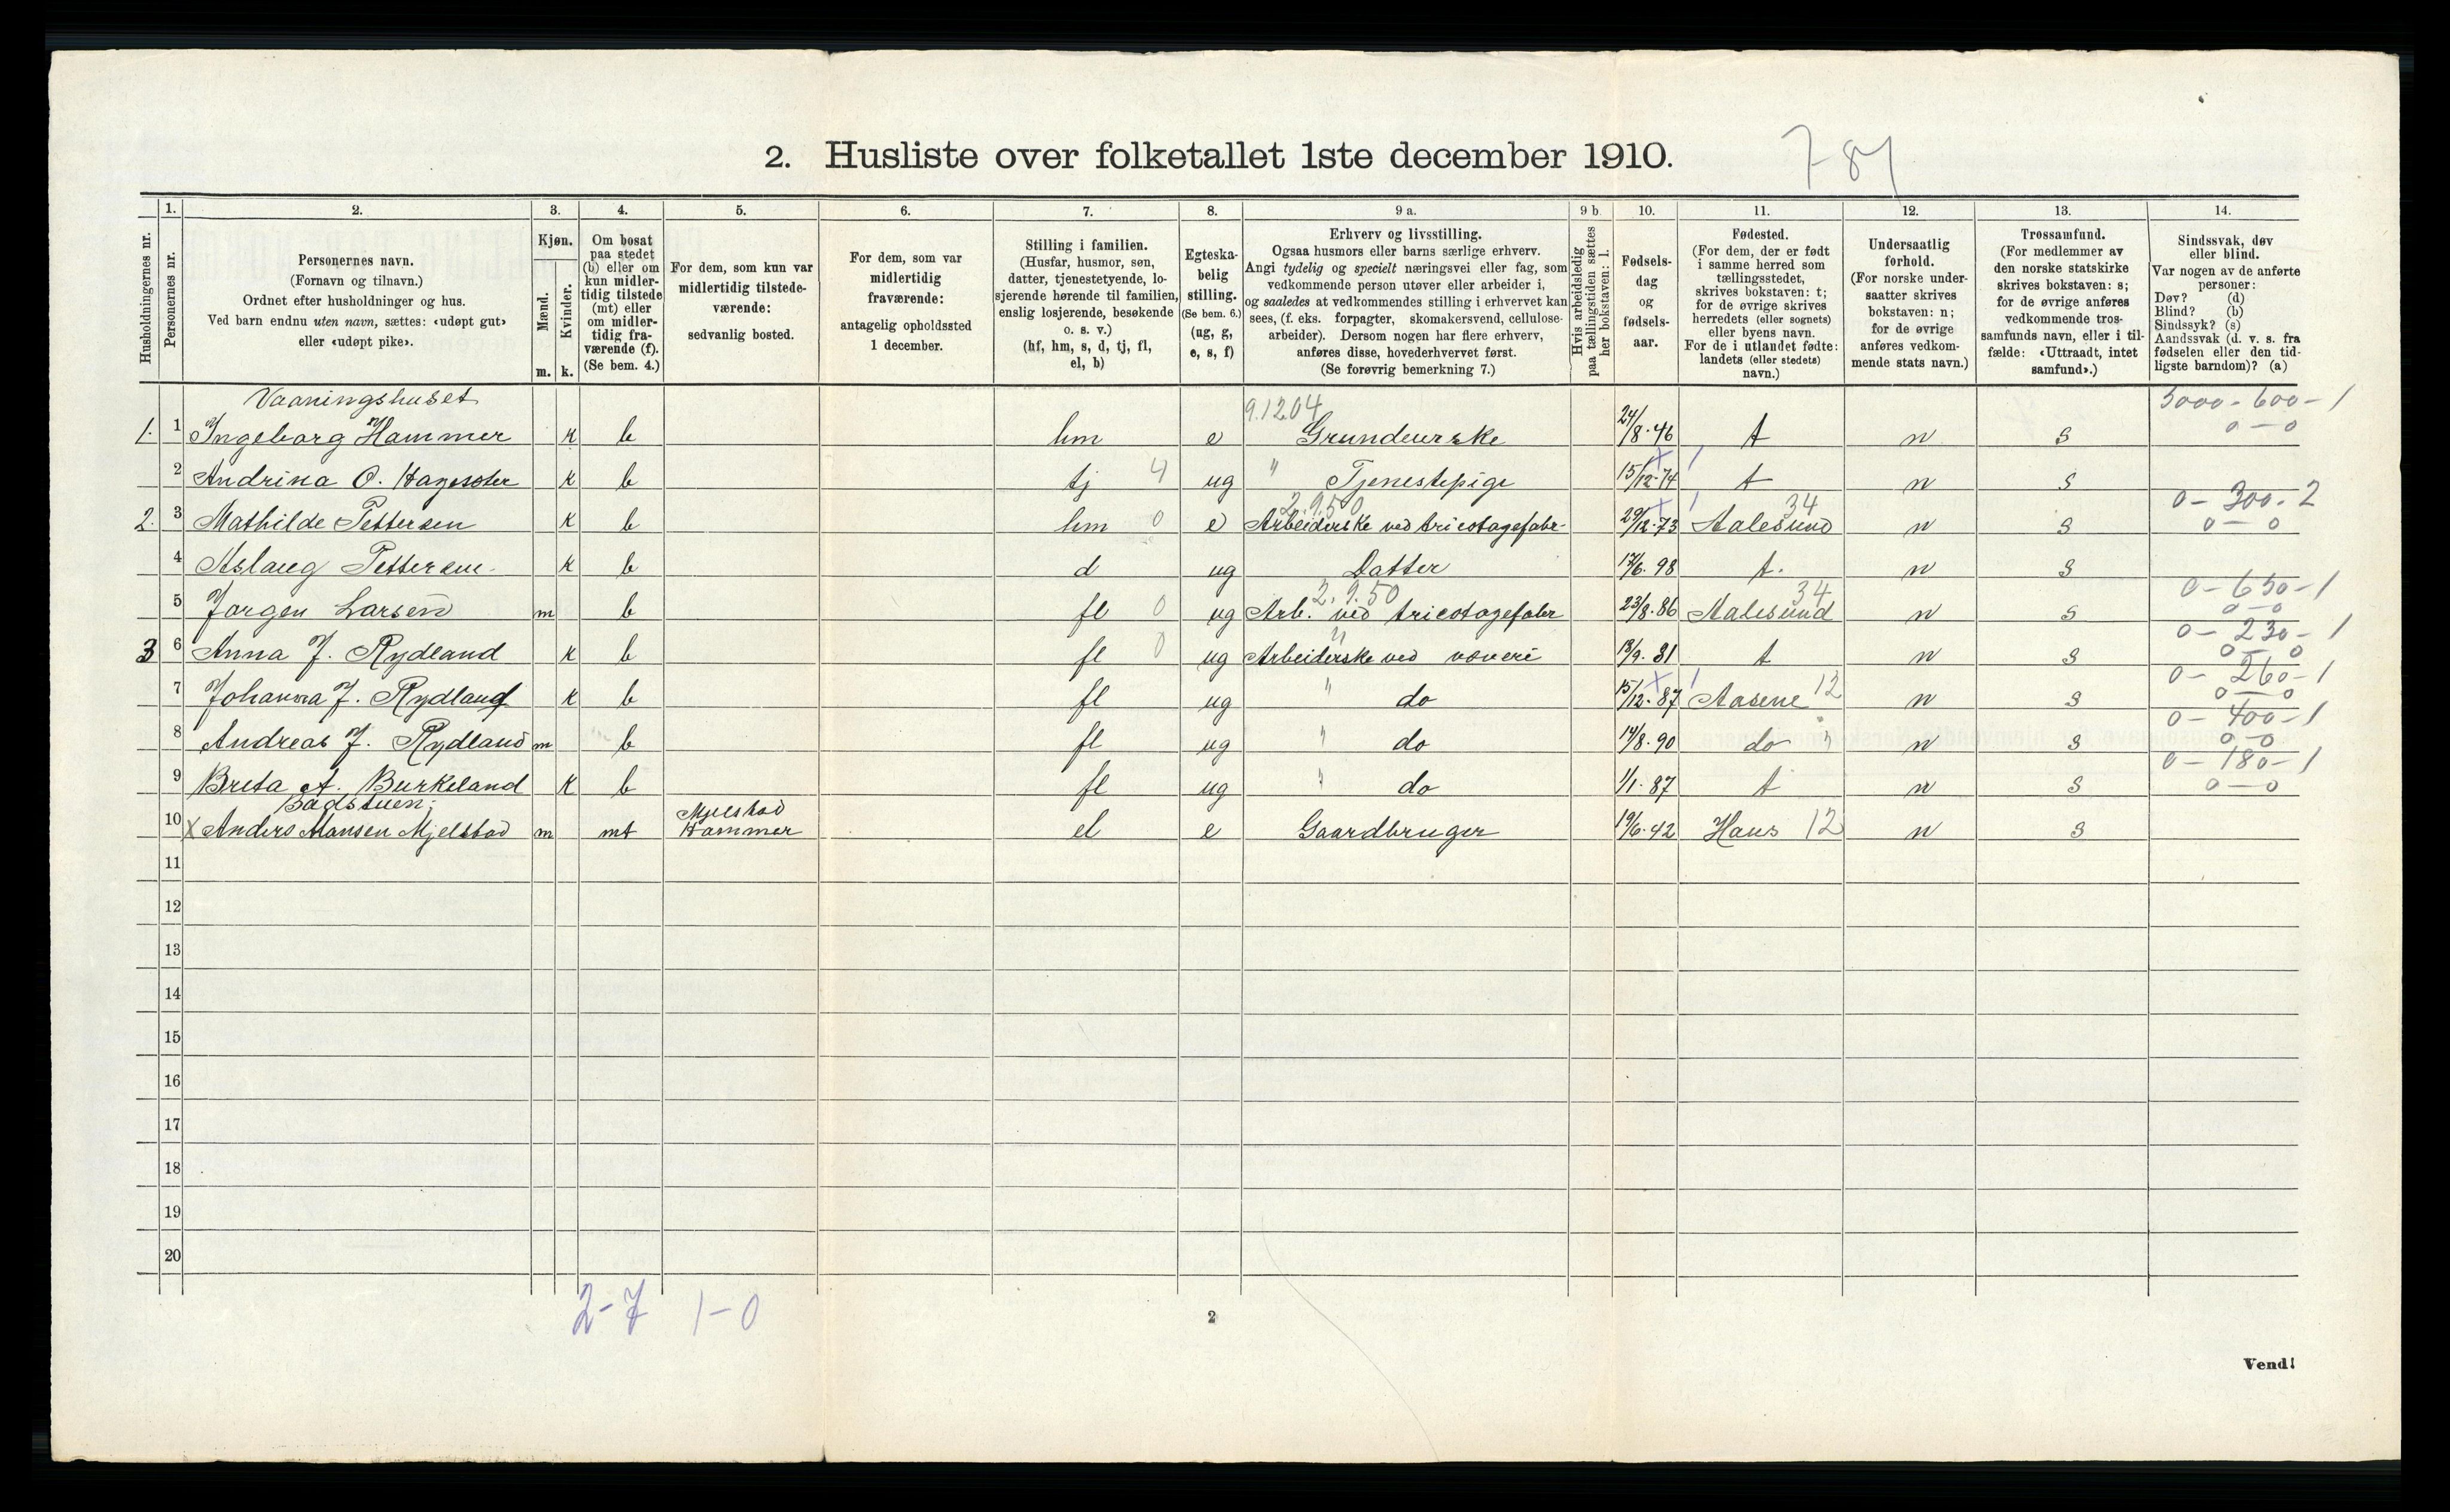 2. Husliste over folketallet 1ste december 1910.
7-81
Husholdningernes nr.
1.
Personernes nr.
2.
Personernes navn.
(Fornavn og tilnavn.)
Ordnet efter husholdninger og hus.
Ved barn endnu uten navn, sættes: «udøpt gut»
eller «udøpt pike».
3.
Kjøn.
Mænd.
Kvinder.
m. k.
4.
Om bosat
paa stedet
(b) eller om
kun midler-
tidig tilstede
(mt) eller
om midler-
tidig fra-
værende (f).
(Se bem. 4.)
5.
For dem, som kun var
midlertidig tilstede-
værende:
sedvanlig bosted.
6.
For dem, som var
midlertidig
fraværende:
antagelig opholdssted
1 december.
7.
Stilling i familien.
(Husfar, husmor, søn,
datter, tjenestetyende, lo-
sjerende hørende til familien,
enslig losjerende, besøkende
o. s. v.)
(hf, hm, s, d, tj, fl,
el, b)
8.
Egteska-
belig
stilling.
(Se bem. 6.)
(ug, g,
e, s, f)
9 a.
Erhverv og livsstilling.
Ogsaa husmors eller barns særlige erhverv.
Angi tydelig og specielt næringsvei eller fag, som
vedkommende person utøver eller arbeider i,
og saaledes at vedkommendes stilling i erhvervet kan
sees, (f. eks. forpagter, skomakersvend, cellulose-
arbeider). Dersom nogen har flere erhverv,
anføres disse, hovederhvervet først.
(Se forøvrig bemerkning 7.)
9 b.
Hvis arbeidsledig
paa tællingstiden sættes
her bokstaven: l.
10.
Fødsels-
dag
og
fødsels-
aar.
11.
Fødested.
(For dem, der er født
i samme herred som
tællingsstedet,
skrives bokstaven: t;
for de øvrige skrives
herredets (eller sognets)
eller byens navn.
For de i utlandet fødte:
landets (eller stedets)
navn.)
12.
Undersaatlig
forhold.
(For norske under-
saatter skrives
bokstaven: n;
for de øvrige
anføres vedkom-
mende stats navn.)
13.
Trossamfund.
(For medlemmer av
den norske statskirke
skrives bokstaven: s;
for de øvrige anføres
vedkommende tros-
samfunds navn, eller i til-
fælde: «Uttraadt, intet
samfund».)
14.
Sindssvak, døv
eller blind.
Var nogen av de anførte
personer:
Døv? (d)
Blind? (b)
Sindssyk? (s)
Aandssvak (d. v. s. fra
fødselen eller den tid-
ligste barndom)? (a)
Vaaningshuset 9.1204 5000-600-1
1. 1 Ingeborg Hammer k b hm e Grundeierske 24/8.46 t n s 0-0
2 Andrina O. k b tj 4 ug " Tjenestepige 15/12.74 t n s
2.9.50 34 0-300-2
2. 3 Mathilde Pettersen k b hm 0 e Arbeiderske ved tricotagefabr. 29/12.73 Aalesund n s 0-0
4 Aslaug Pettersen k b d ug Datter 17/6.98 t. n s
2.9.50 34 0-650-1
5 Jørgen Larsen m b fl 0 ug Arb. ved tricotagefabr 23/8.86 Aalesund n s 0-0
" 0-230-1
3 6 Anna J. Rydland k b fl 0 ug Arbeiderske ved væveri 18/9.81 t n s 0-0
0-260-1
7 Johanna J. Rydland k b fl ug " do 15/12.87 Aasene 12 n s 0-0
0-400-1
8 Andreas J. Rydland m b fl ug " do 14/8.90 do " n s 0-0
0-180-1
9 Breta A. Burkeland k b fl ug " do 1/1.87 t n s 0-0
Badstuen; Mjelstad
10 X Anders Mansen Mjelstad m mt Hammer el e Gaardbruger 19/6.42 Haus 12 n s
11
12
13
14
15
16
17
18
19
20
2-7 1-0
2
Vend!